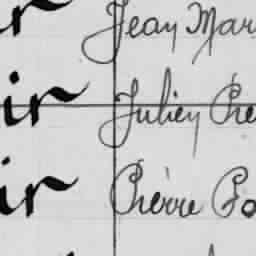 Jean Mar
ir Julien Che
ir Pierre Bo